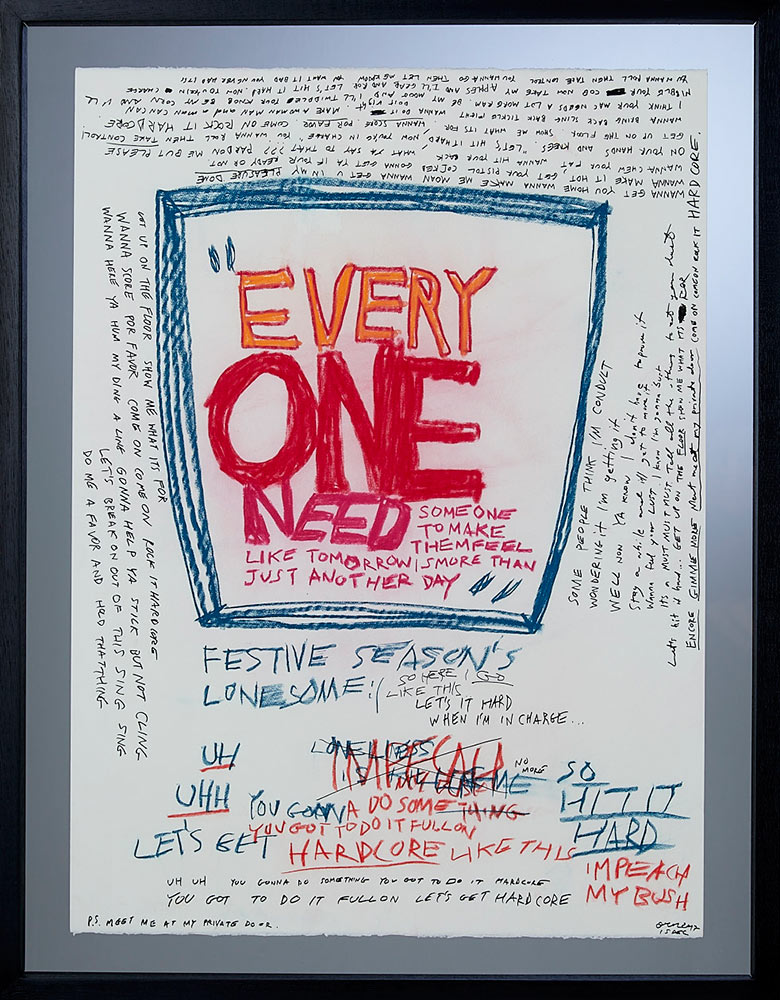 WANNA GET YOU HOME WANNA MAKE ME MOAN WANNA GET U IN MY PLEASURE DOME
WANNA MAKE IT HOT GET YOUR PISTOL COCKED GONNA GET YA IF YOUR READY OR NOT
WANNA CHEW YOUR FAT, WANNA HIT YOUR BACK WHAT YA SAY TO THAT ??? PARDON ME BUT ME PLEASE
ON YOUR HANDS AND KNEES, "LET'S HIT IT HARD" NOW YOU'RE IN CHARGE YOU WANNA ROLL THEN TAKE CONTROL
GET UP ON THE FLOOR SHOW ME WHAT ITS FOR, WANNA SCORE POR FAVOR COME ON ROCK IT HARDCORE
WANNA BACK SLING BACK TICKLE WANNA DO IT MAKE A WOMAN MAN AND A MAN CAN CAN
I THINK YOUR MAC NEEDS A LOT MORE BE MY AND I'LL TWIDDLE YOUR KNOB BE MY CORN AND U LL
NIBBLE YOUR COB NOW TAKE MY APPLES AND LET'S HIT IT HARD NOW YOU'RE IN CHARGE
YA WANNA ROLL THEN TAKE CONTROL YOU WANNA GO THEN LET ME KNOW YA WANT IT BAD YOU NEVER HAD IT
GET UP ON THE FLOOR SHOW ME WHAT ITS FOR
WANNA SCORE POR FAVOR COME ON COME ON ROCK IT HARDCORE
WANNA HERE YA HUM MY DING A LING GONNA HELP YA STICK BUT NOT CLING
LET'S BREAK ON OUT OF THIS SING SING
DO ME A FAVOR AND HOLD THAT THING
"EVERY
ONE
NEED SOMEONE
TO MAKE
THEM FEEL
LIKE TOMORROW IS MORE THAN
JUST ANOTHER DAY"
SOME PEOPLE THINK I'M CONDUCT
WONDERING if I'm getting it
WELL NOW YA KNOW I don't have to prove it
Stay a while and ill get to move it
Wanna feel your LUST I know I'm gonna bust
it's a MUST MUST MUST Tell all the thing to your dust
Let's hit it hard... GET UP ON THE FLOOR SHOW ME WHAT ITS FOR
ENCORE GIMME MORE Meet me at my private door COME ON COMEON ROCK IT HARD CORE.
FESTIVE SEASON'S
LONESOME :( SO HERE I GO
LIKE THIS
LET'S IT HARD
WHEN I'M IN CHARGE...
UH
LONELINESS
IMPEACH
NO MORE
SO
HIT IT
HARD
UHH YOU GONNA DO SOMETHING
YOU GOT TO DO IT FULLON
LET'S GET HARDCORE LIKE THIS
IMPEACH
MY BUSH
UH UH YOU GONNA DO SOMETHING YOU GOT TO DO IT HARDCORE
YOU GOT TO DO IT FULLON LET'S GET HARDCORE
P.S. MEET ME AT MY PRIVATE DOOR.
15 DEC